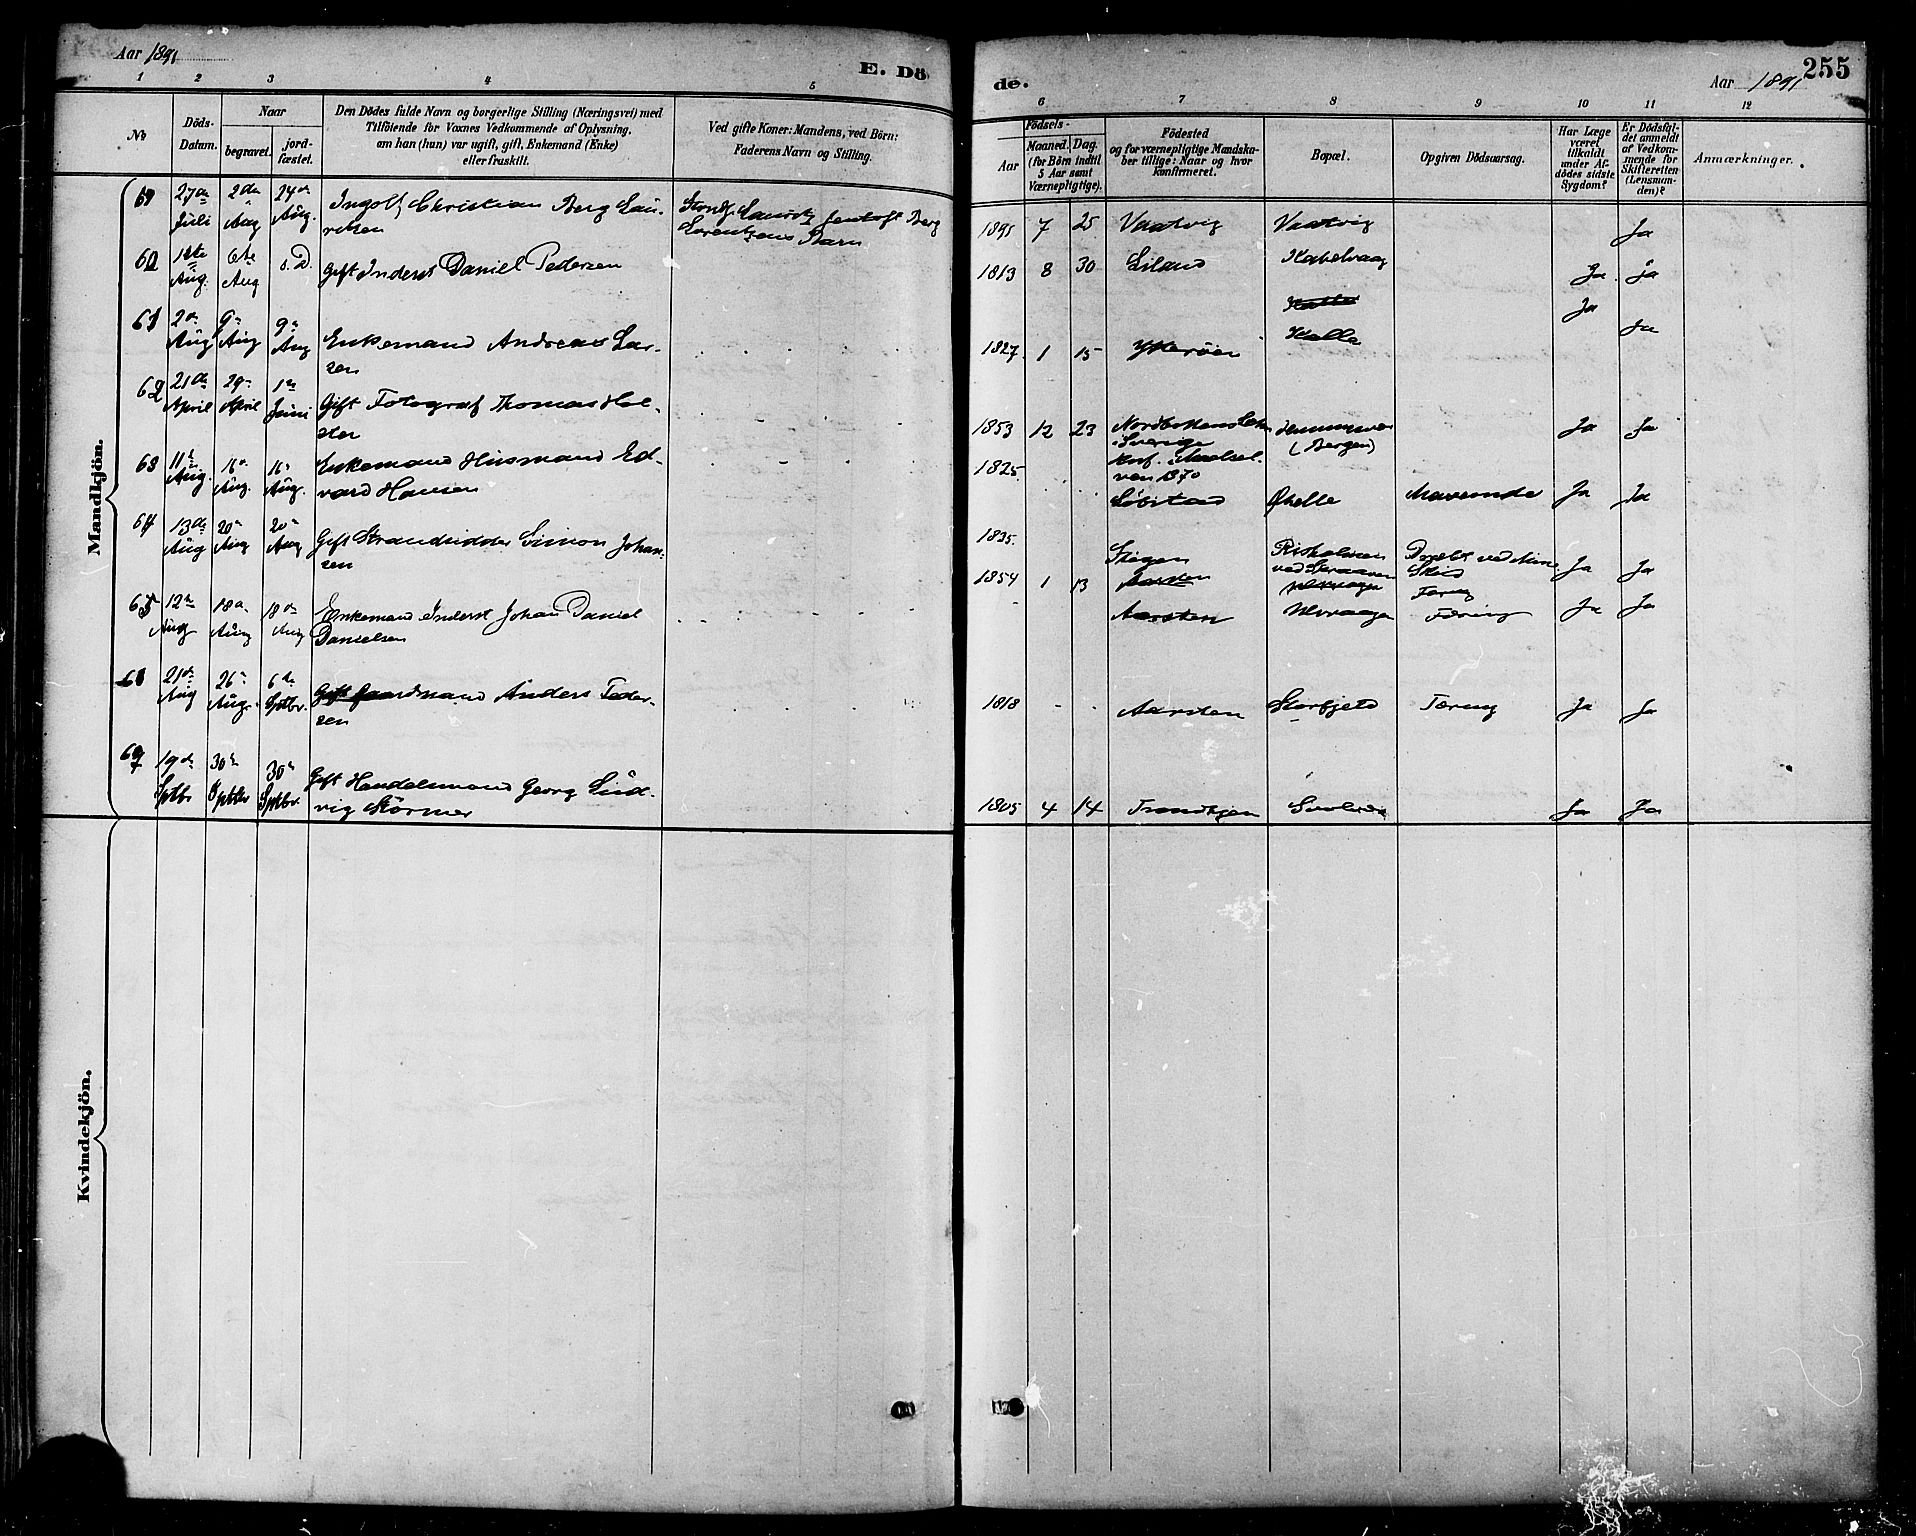 Aar 1891
E. Dö
de.
Aar 1891
255
1 2 3 4 5
6 7 8 9 10 11 12
No
Döds-
Datum.
Naar
begravet.
jord-
fæstet.
Den Dödes fulde Navn og borgerlige Stilling (Næringsvei) med
Tilföiende for Voxnes Vedkommende af Oplysning,
om han (hun) var ugift, gift, Enkemand (Enke)
eller fraskilt.
Ved gifte Koner: Mandens, ved Börn:
Faderens Navn og Stilling.
Födsels-
Aar
Maaned. Dag.
(for Börn indtil
5 Aar samt
Værnepligtige).
Födested
og for værnepligtige Mandska-
ber tillige: Naar og hvor
konfirmeret.
Bopæl.
Opgiven Dödsaarsag.
Har Læge
været
tilkaldt
under Af-
dödes sidste
Sygdom?
Er Dödsfal-
det anmeldt
af Vedkom-
mende for
Skifteretten
(Lensman-
den)?
Anmærkninger.
Mandkjön.
27de Juli
2den Aug
24de Aug.
Ingolf Christian Berg Lau-
ritsen
Lauritz Berg
Lorentzens Barn
1891 7 25 Vaatvig Vaatvig Ja
60 1ste Aug. 6te Aug s. D. Gift Inderst Daniel Pedersen
1813 8 30 Liland Kabelvaag Ja Ja
61 2n Aug 9n Aug 9n Aug Enkemand Andreas Lar-
sen
Ja
1827 1 15 Ytterøen Kalle Ja
62 21de April 29n April 1ste Juni Gift Fotograf Thomas Hol-
ster
1853 12 23 Nordbottens Len
Sverige
Konf. i Maalsel-
ven 1870
(Bergen)
Ja Ja
63 11te Aug. 16n Aug. 16n Aug. Enkemand Husmand Ed-
vard Hansen
1825 Løbstad Ørelle Mavesmerte Ja Ja
64 13de Aug 20n Aug 20n Aug Gift Strandsidder Simon Johan-
sen
1835 Steigen Risholmen
ved Skraaven
Ja Ja
65 12te Aug 18n Aug 18de Aug Enkemand Inderst Johan Daniel
Danielsen
1854 1 13 Aarsten Ulvaagen Tæring Ja Ja
21de Aug 26n Aug. 6te Sptbr. Gift Gaardmand Anders Peder-
sen
1818 Aarsten Storfjeld Tæring Ja Ja
67 19de Sptb 30te Sptbr 30n Sptbr. Gift Handelsmand Georg Lud-
vig Störmer
1805 4 14 Trondhjem Svolvær Ja Ja
Kvindekjön.